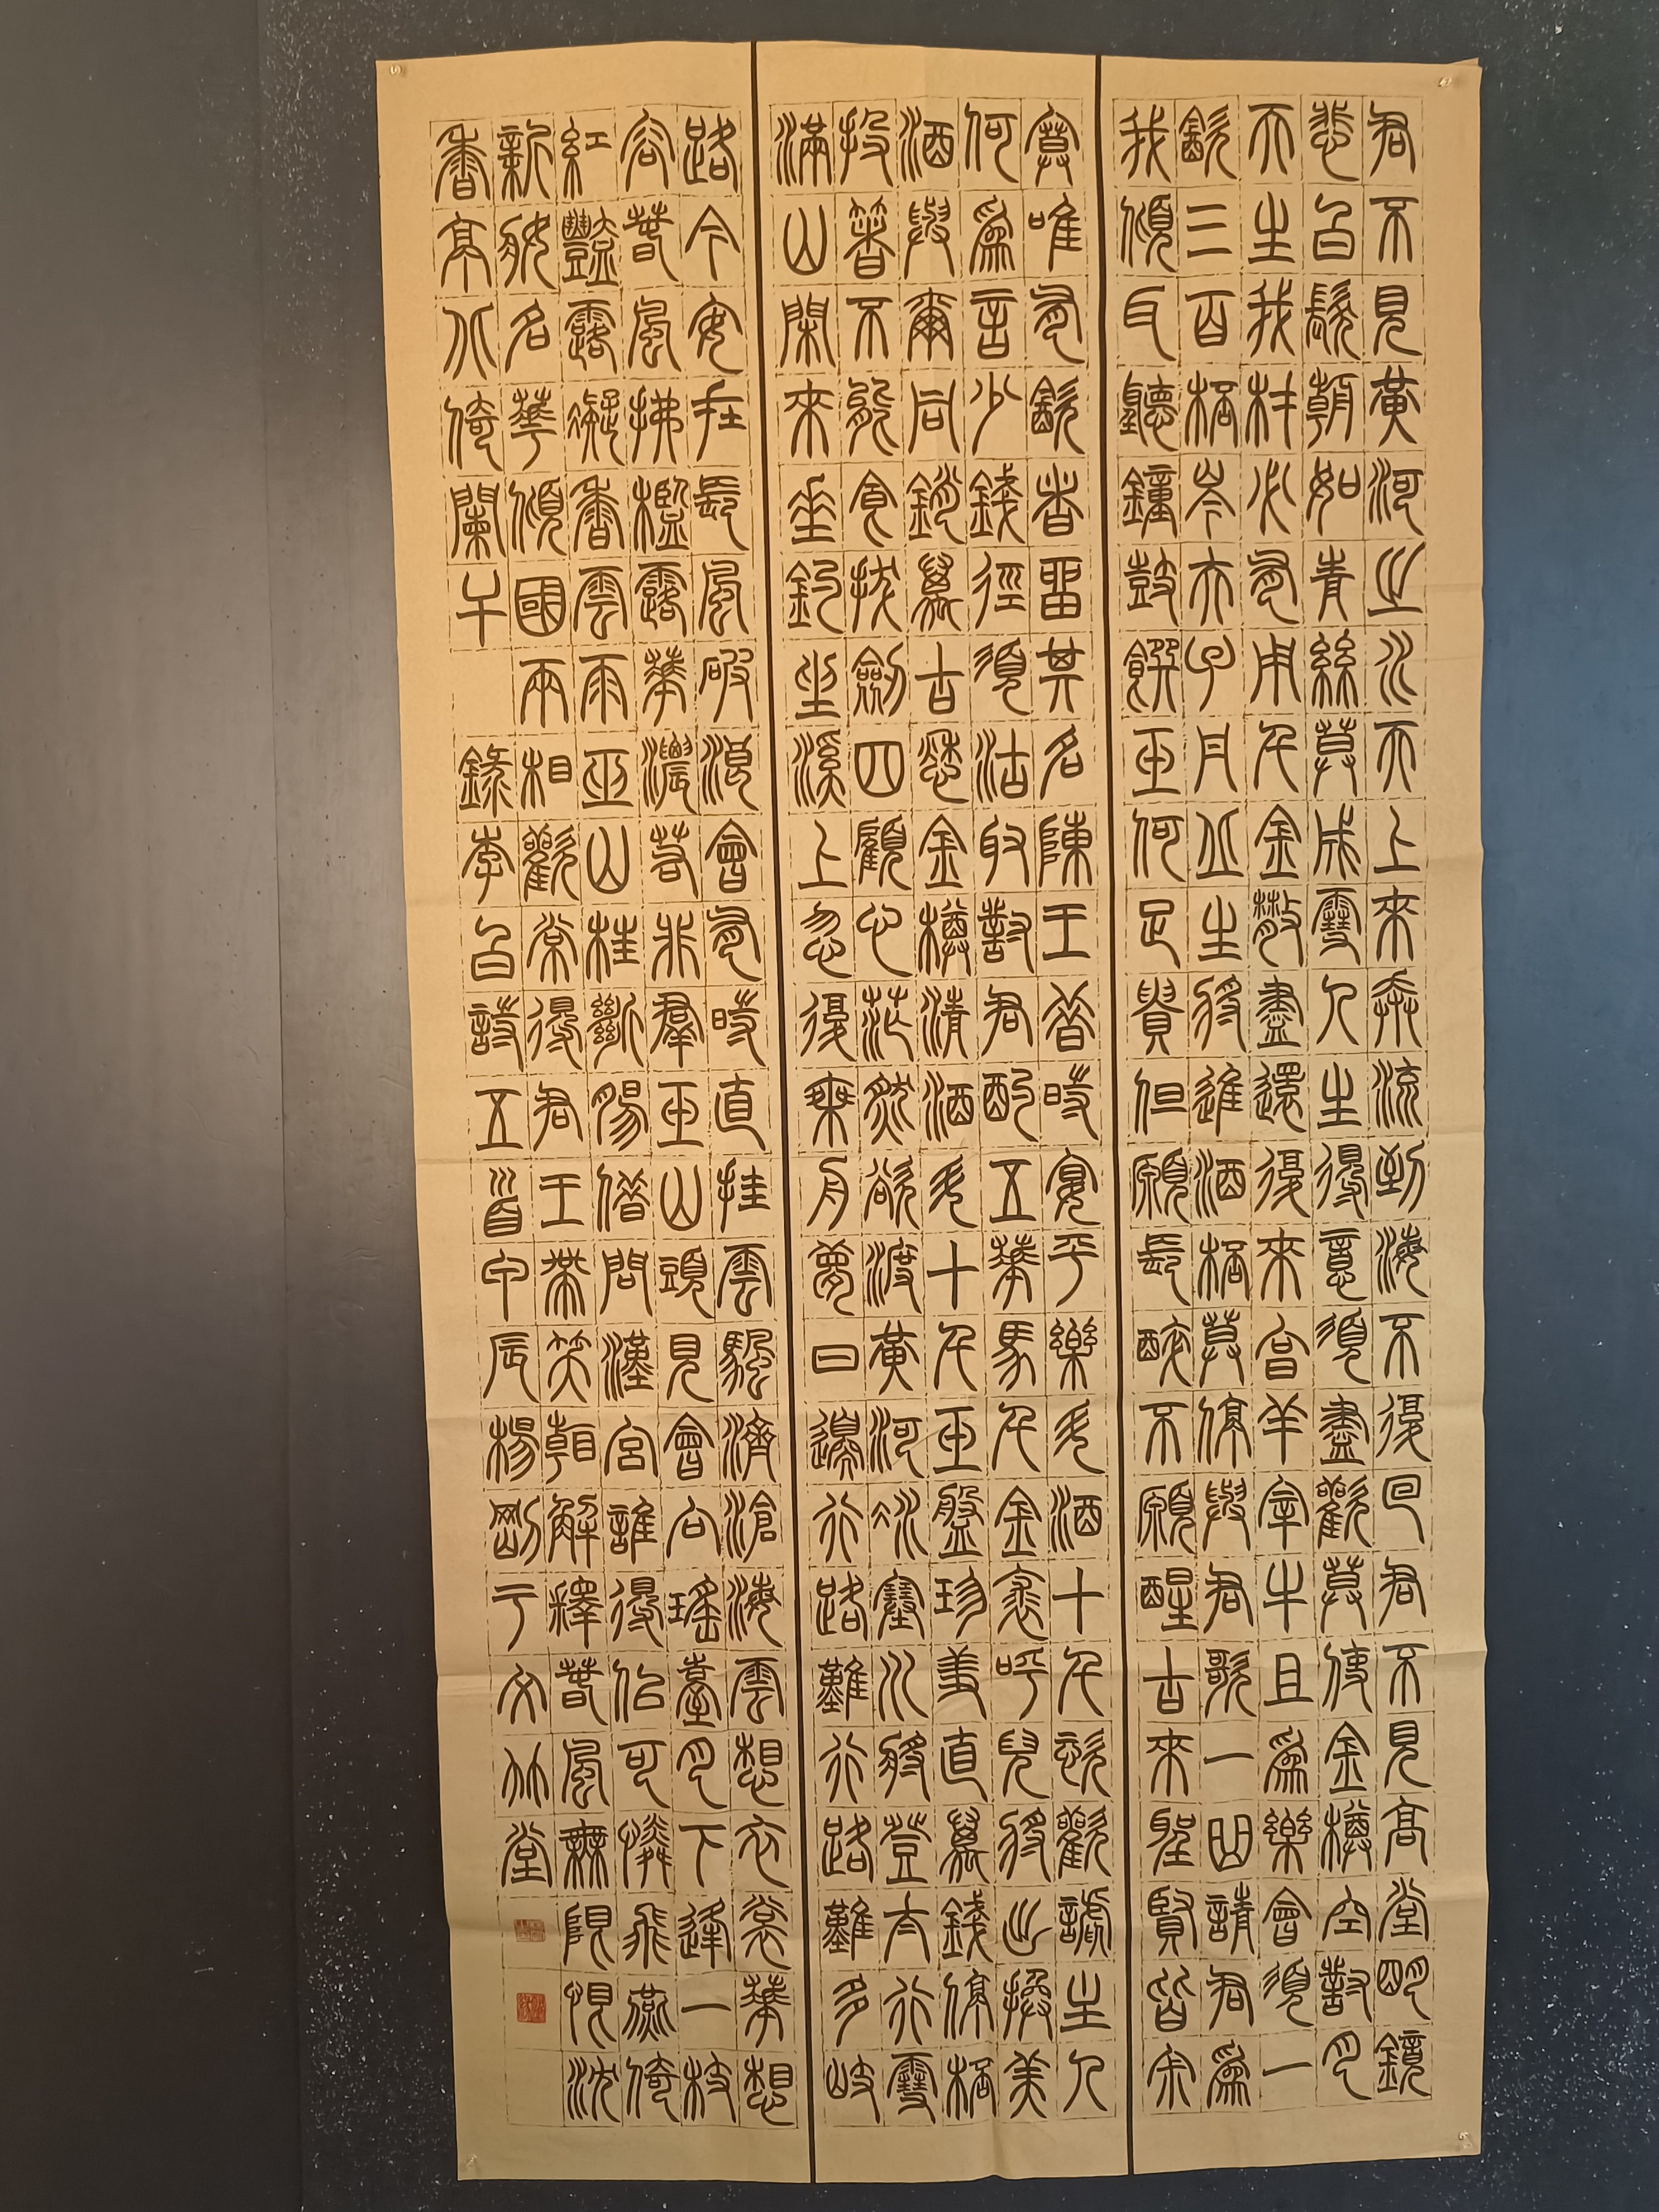 君不見黃河之水天上來奔流到海不復回君不見高堂明鏡
悲白髮朝如青絲莫成雪人生得意須盡歡莫使金樽空對月
天生我材必有用千金散盡還復來烹羊宰牛且爲樂會須一
飲三百杯岑夫子丹丘生將進酒杯莫停與君歌一曲請君爲
我傾耳聽鐘鼓饌玉何足貴但願長醉不願醒古來聖賢皆寂
寞唯有飲者留其名陳王昔時宴平樂斗酒十千恣歡謔主人
何爲言少錢徑須沽取對君酌五華馬千金裘呼兒將出換美
酒與爾同銷萬古愁金樽清酒斗十千玉盤珍羞直萬錢停杯
投箸不能食拔劍四顧心茫然欲渡黃河冰塞川將登太行雪
滿山閑來垂釣坐溪上忽復乘舟夢日邊行路難行路難多岐
路今安在長風破浪會有時直挂雲帆濟滄海雲想衣裳華想
容春風拂檻露華濃若非羣玉山頭見會向瑤臺月下逢一枝
紅豔露凝香雲雨巫山枉斷腸借問漢宮誰得似可憐飛燕倚
新妝名華傾國兩相歡常得君王帶笑看解釋春風無限恨沈
香亭北倚闌干 錄李白詩五首甲辰楊剛于文竹堂